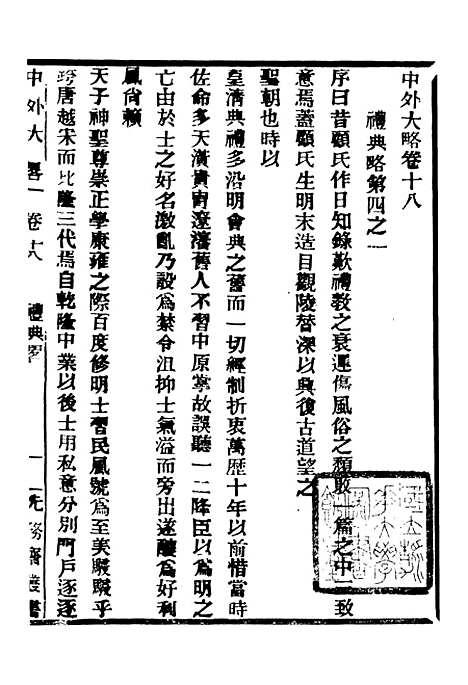 中外大略卷十八
禮典略第四之一
序曰昔顧氏作日知錄歎禮教之衰遲傷風俗之頹敗一篇之中三致
意焉蓋顧氏生明末造目觀陵替深以興復古道望之
聖朝也時以
皇清典禮多沿明會典之舊而一切經制折衷萬歷十年以前惜當時
佐命多天潢貴冑遼瀋舊人不習中原掌故誤聽一二降臣以爲明之
亡由於士之好名激亂乃設爲禁令沮抑士氣溢而旁出遂釀爲好利
風尙賴
天子神聖尊崇正學康雍之際百度修明士習民風號爲至美駸駸乎
跨唐越宋而比隆三代焉自乾隆中業以後士用私意分別門戶逐逐
中外大畧 卷十八 禮典畧 一 先務齋叢書